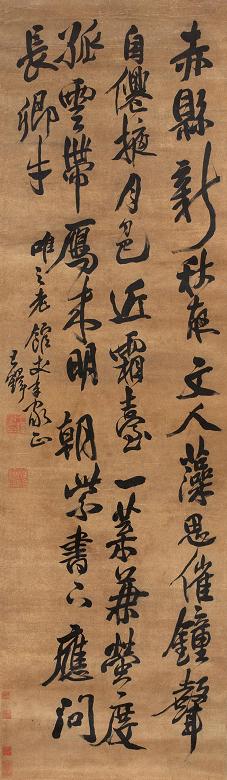 赤縣新秋夜文人藻思催鐘聲
自僊掖月色近霜臺一葉兼螢度
孤雲帶鴈来明朝紫書下應問
長卿才
王鐸